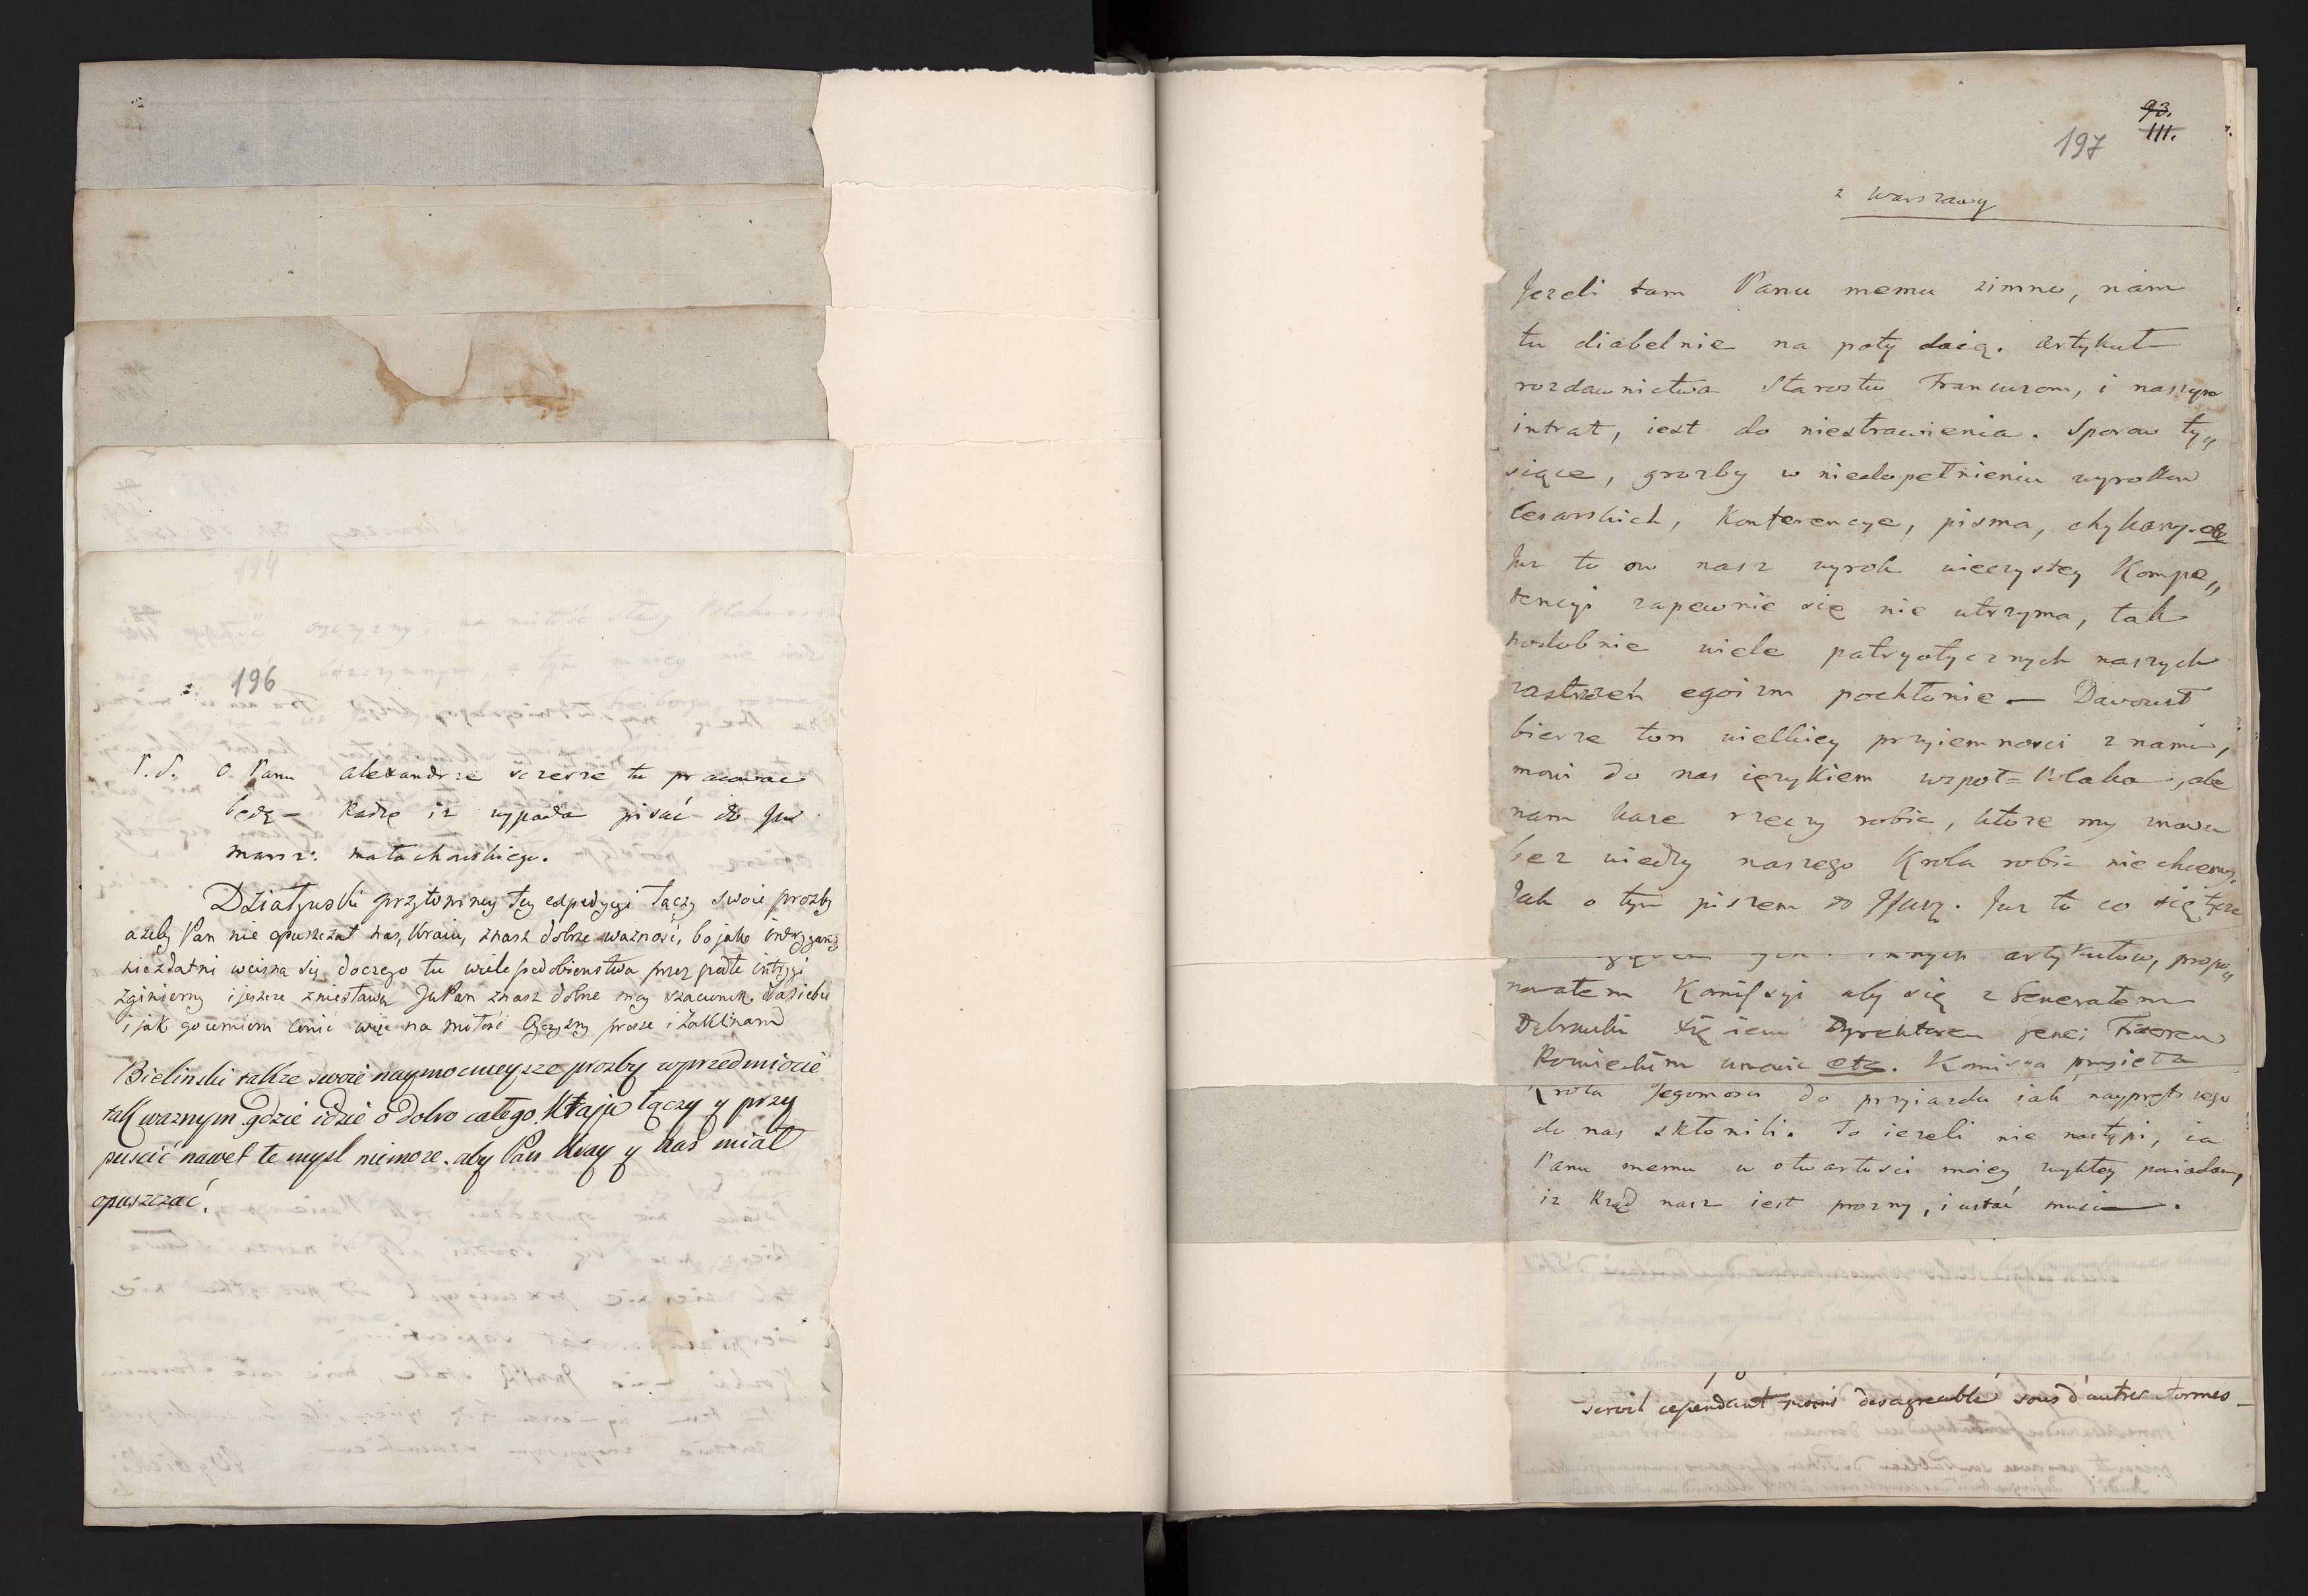 196
P.S. O Panu Alexandrze szczerze tu pracować
będę — Radzę iż wypada pisać do JW
Marsz: Małachowskiego.
Działyński przytomny tey expedycyi łączy swoie prozby
ażeby Pan nie opuszczał nas, kraiu, znasz dobrze ważność, bo jako intryganci
niezdatni wcisną się, doczego tu wiele podobieństwa przez podłe intrygi
zginiemy i jeszcze z niesławą JwPan znasz dobrze moy szacunek dla siebie
i jak go umiem cenić więc na miłość Oyczyzny proszę i zaklinam
Bielinski także swoie naymocnieysze prozby w przedmiocie
tak waznym gdzie idzie o dobro całego Kraju łączy y przy
puścić nawet te mysl niemoze. aby Pan kray y nas miał
opuszczać.
93.
111.
197
z Warszawy
Jezeli tam Panu memu zimno, nam
tu diabelnie na poty daią. Artykuł
rozdawnictwa Starostw Francuzom, i naszym
intrat, iest do niestrawienia. Sporow ty„
siące, grozby w niedopełnieniu wyrokow
Cesarskich, Konferencye, pisma, chykany. etc
Juz to ow nasz wyrok wieczystey Kompe„
tencyi zapewnie się nie utrzyma, tak
podobnie wiele patryotycznych naszych
zastrzeń egoizm pochłonie — Davoust
bierze ton wielkiey przyiemnosci z nami,
mowi do nas ięzykiem wspoł=Polaka, ale
nam kaze rzeczy robic, ktore my znowu
bez wiedzy naszego Krola robic nie chcemy.
Jak o tym piszem do JJwą. Juz to co się tycze
innych artykułow, propo„
nowałem Komissyi aby się z Generałem
Dąbrowskim
umowic etc. Komissya
Krola Jegomosci do przyiazdu iak nayprętszego
do nas skłonili. To iezeli nie nastąpi, ia
Panu memu w otwartosci moiey zwykłey powiadam,
iz Rząd nasz iest prozny, i ustać musi —.
seroit cependant moins desagreable sous d'autres formes —